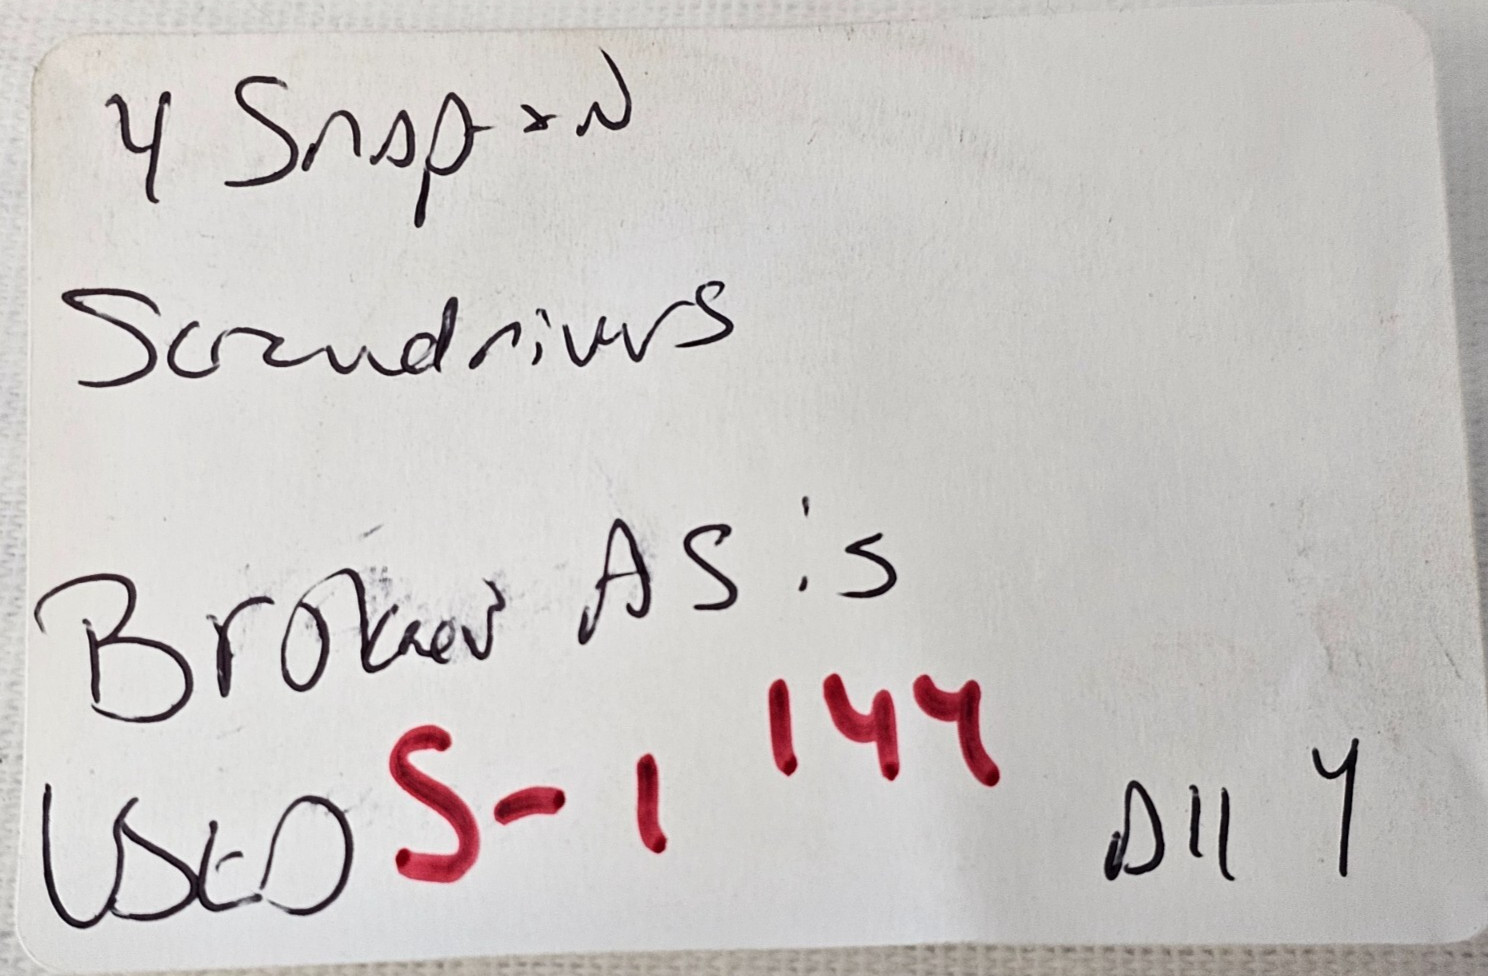 4 Snap-on
Screwdrivers
Broken AS is
USED S-1 144 All 4